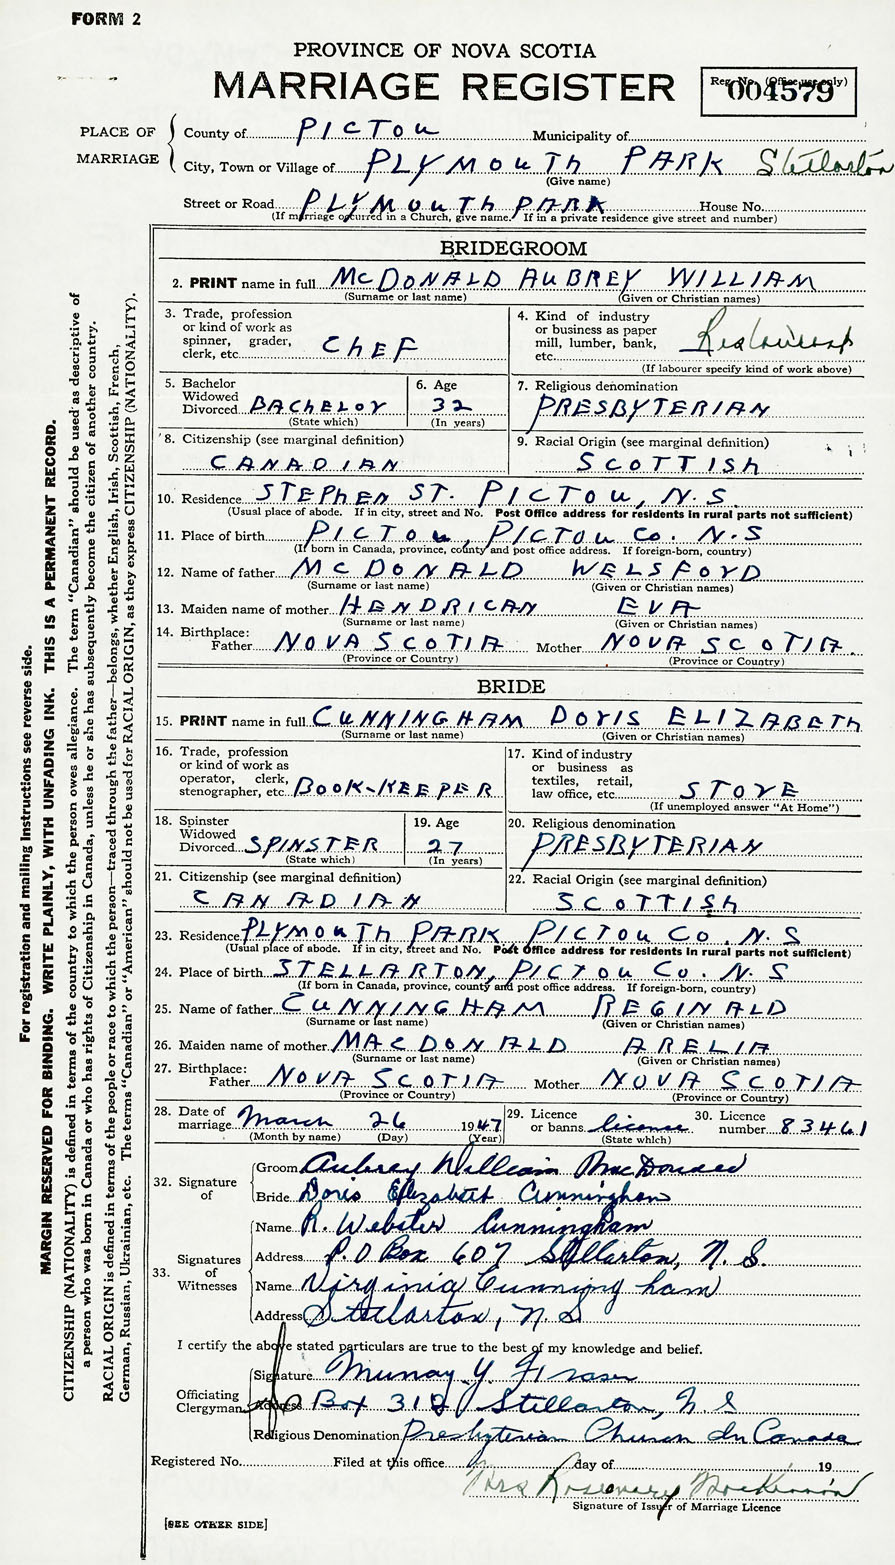 FORM 2
PROVINCE OF NOVA SCOTIA
MARRIAGE REGISTER
Reg. No. (Office use only)
004579
PLACE OF MARRIAGE
County of PICTOU Municipality of
City, Town or Village of PLYMOUTH PARK Stellarton
(Give name)
Street or Road PLYMOUTH PARK House No.
(If marriage occurred in a Church, give name. If in a private residence give street and number)
BRIDEGROOM
2. PRINT name in full McDONALD AUBREY WILLIAM
(Surname or last name) (Given or Christian names)
3. Trade, profession or kind of work as spinner, grader, clerk, etc. CHEF
4. Kind of industry or business as paper mill, lumber, bank, etc. Restaurant
(If labourer specify kind of work above)
5. Bachelor Widowed Divorced BACHELOR
(State which)
6. Age 32
(In years)
7. Religious denomination
PRESBYTERIAN
8. Citizenship (see marginal definition)
CANADIAN
9. Racial Origin (see marginal definition)
SCOTTISH
10. Residence STEPHEN ST. PICTOU, N.S.
(Usual place of abode. If in city, street and No. Post Office address for residents in rural parts not sufficient)
11. Place of birth PICTOU, PICTOU Co. N.S
(If born in Canada, province, county and post office address. If foreign-born, country)
12. Name of father McDONALD WELSFORD
(Surname or last name) (Given or Christian names)
13. Maiden name of mother HENDRICAN EVA
(Surname or last name) (Given or Christian names)
14. Birthplace: Father NOVA SCOTIA Mother NOVA SCOTIA.
(Province or Country) (Province or Country)
BRIDE
15. PRINT name in full CUNNINGHAM DORIS ELIZABETH
(Surname or last name) (Given or Christian names)
16. Trade, profession or kind of work as operator, clerk, stenographer, etc. BOOK-KEEPER
17. Kind of industry or business as textiles, retail, law office, etc. STORE
(If unemployed answer "At Home")
18. Spinster Widowed Divorced SPINSTER
(State which)
19. Age 27
(In years)
20. Religious denomination
PRESBYTERIAN
21. Citizenship (see marginal definition)
CANADIAN
22. Racial Origin (see marginal definition)
SCOTTISH
23. Residence PLYMOUTH PARK PICTOU CO. N.S
(Usual place of abode. If in city, street and No. Post Office address for residents in rural parts not sufficient)
24. Place of birth STELLARTON, PICTOU CO. N.S
(If born in Canada, province, county and post office address. If foreign-born, country)
25. Name of father CUNNINGHAM REGINALD
(Surname or last name) (Given or Christian names)
26. Maiden name of mother MACDONALD ARELIA
(Surname or last name) (Given or Christian names)
27. Birthplace: Father NOVA SCOTIA Mother NOVA SCOTIA
(Province or Country) (Province or Country)
28. Date of marriage March 26 1947
(Month by name) (Day) (Year)
29. Licence or banns license
(State which)
30. Licence number 83461
32. Signature of
Groom Aubrey William MacDonald
Bride Doris Elizabeth Cunningham
33. Signatures of Witnesses
Name R. Webster Cunningham
Address P.O Box 607 Stellarton, N. S.
Name Virginia Cunningham
Address Stellarton, N. S
I certify the above stated particulars are true to the best of my knowledge and belief.
Officiating Clergyman
Signature Murray Y. Fraser
Address Box 312 Stellarton, N. S
Religious Denomination Presbyterian Church in Canada
Registered No. Filed at this office day of 19
Mrs Rosemary MacKinnon
Signature of Issuer of Marriage Licence
[SEE OTHER SIDE]
For registration and mailing instructions see reverse side.
MARGIN RESERVED FOR BINDING. WRITE PLAINLY, WITH UNFADING INK. THIS IS A PERMANENT RECORD.
CITIZENSHIP (NATIONALITY) is defined in terms of the country to which the person owes allegiance. The term "Canadian" should be used as descriptive of
a person who was born in Canada or who has rights of Citizenship in Canada, unless he or she has subsequently become the citizen of another country.
RACIAL ORIGIN is defined in terms of the people or race to which the person—traced through the father—belongs, whether English, Irish, Scottish, French,
German, Russian, Ukrainian, etc. The terms "Canadian" or "American" should not be used for RACIAL ORIGIN, as they express CITIZENSHIP (NATIONALITY).